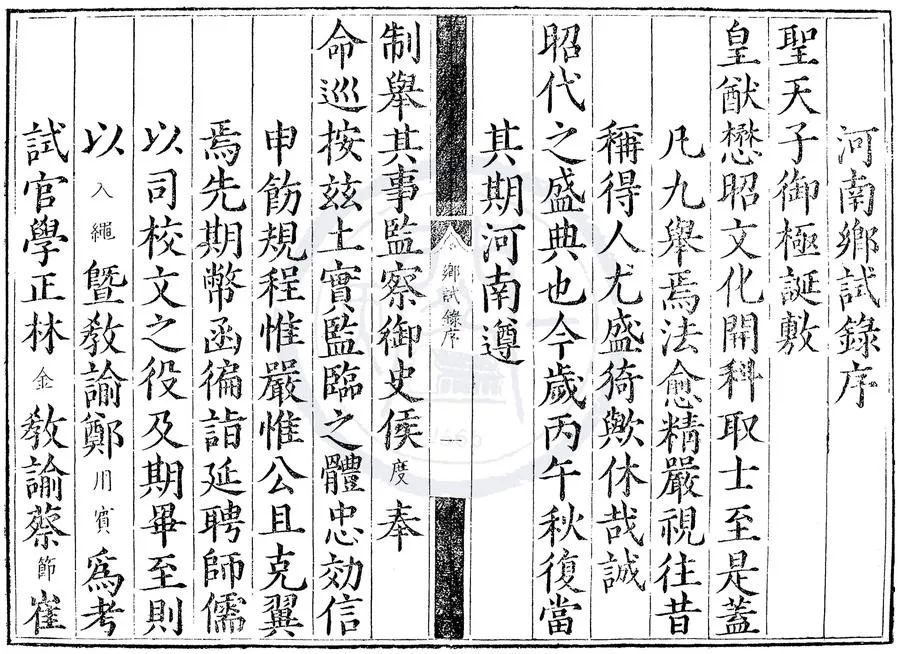 河南鄉試錄序
聖天子御極誕敷
皇猷懋昭文化開科取士至是蓋
凡九舉焉法愈精嚴視往昔
稱得人尤盛猗歟休哉誠
昭代之盛典也今歲丙午秋復當
其期河南遵
鄉試錄序
一
制舉其事監察御史侯度奉
命巡按茲土實監臨之體忠効信
申飭規程惟嚴惟公且克翼
焉先期幣函徧詣延聘師儒
以司校文之役及期畢至則
以入繩暨教諭鄭用賓為考
試官學正林金教諭蔡節崔